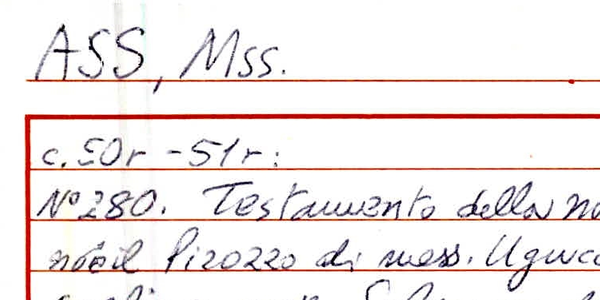 ASS, Mss.
c. 50r - 51r:
N° 280. Testamento della
nobil Pirozzo di mess. Ugucc